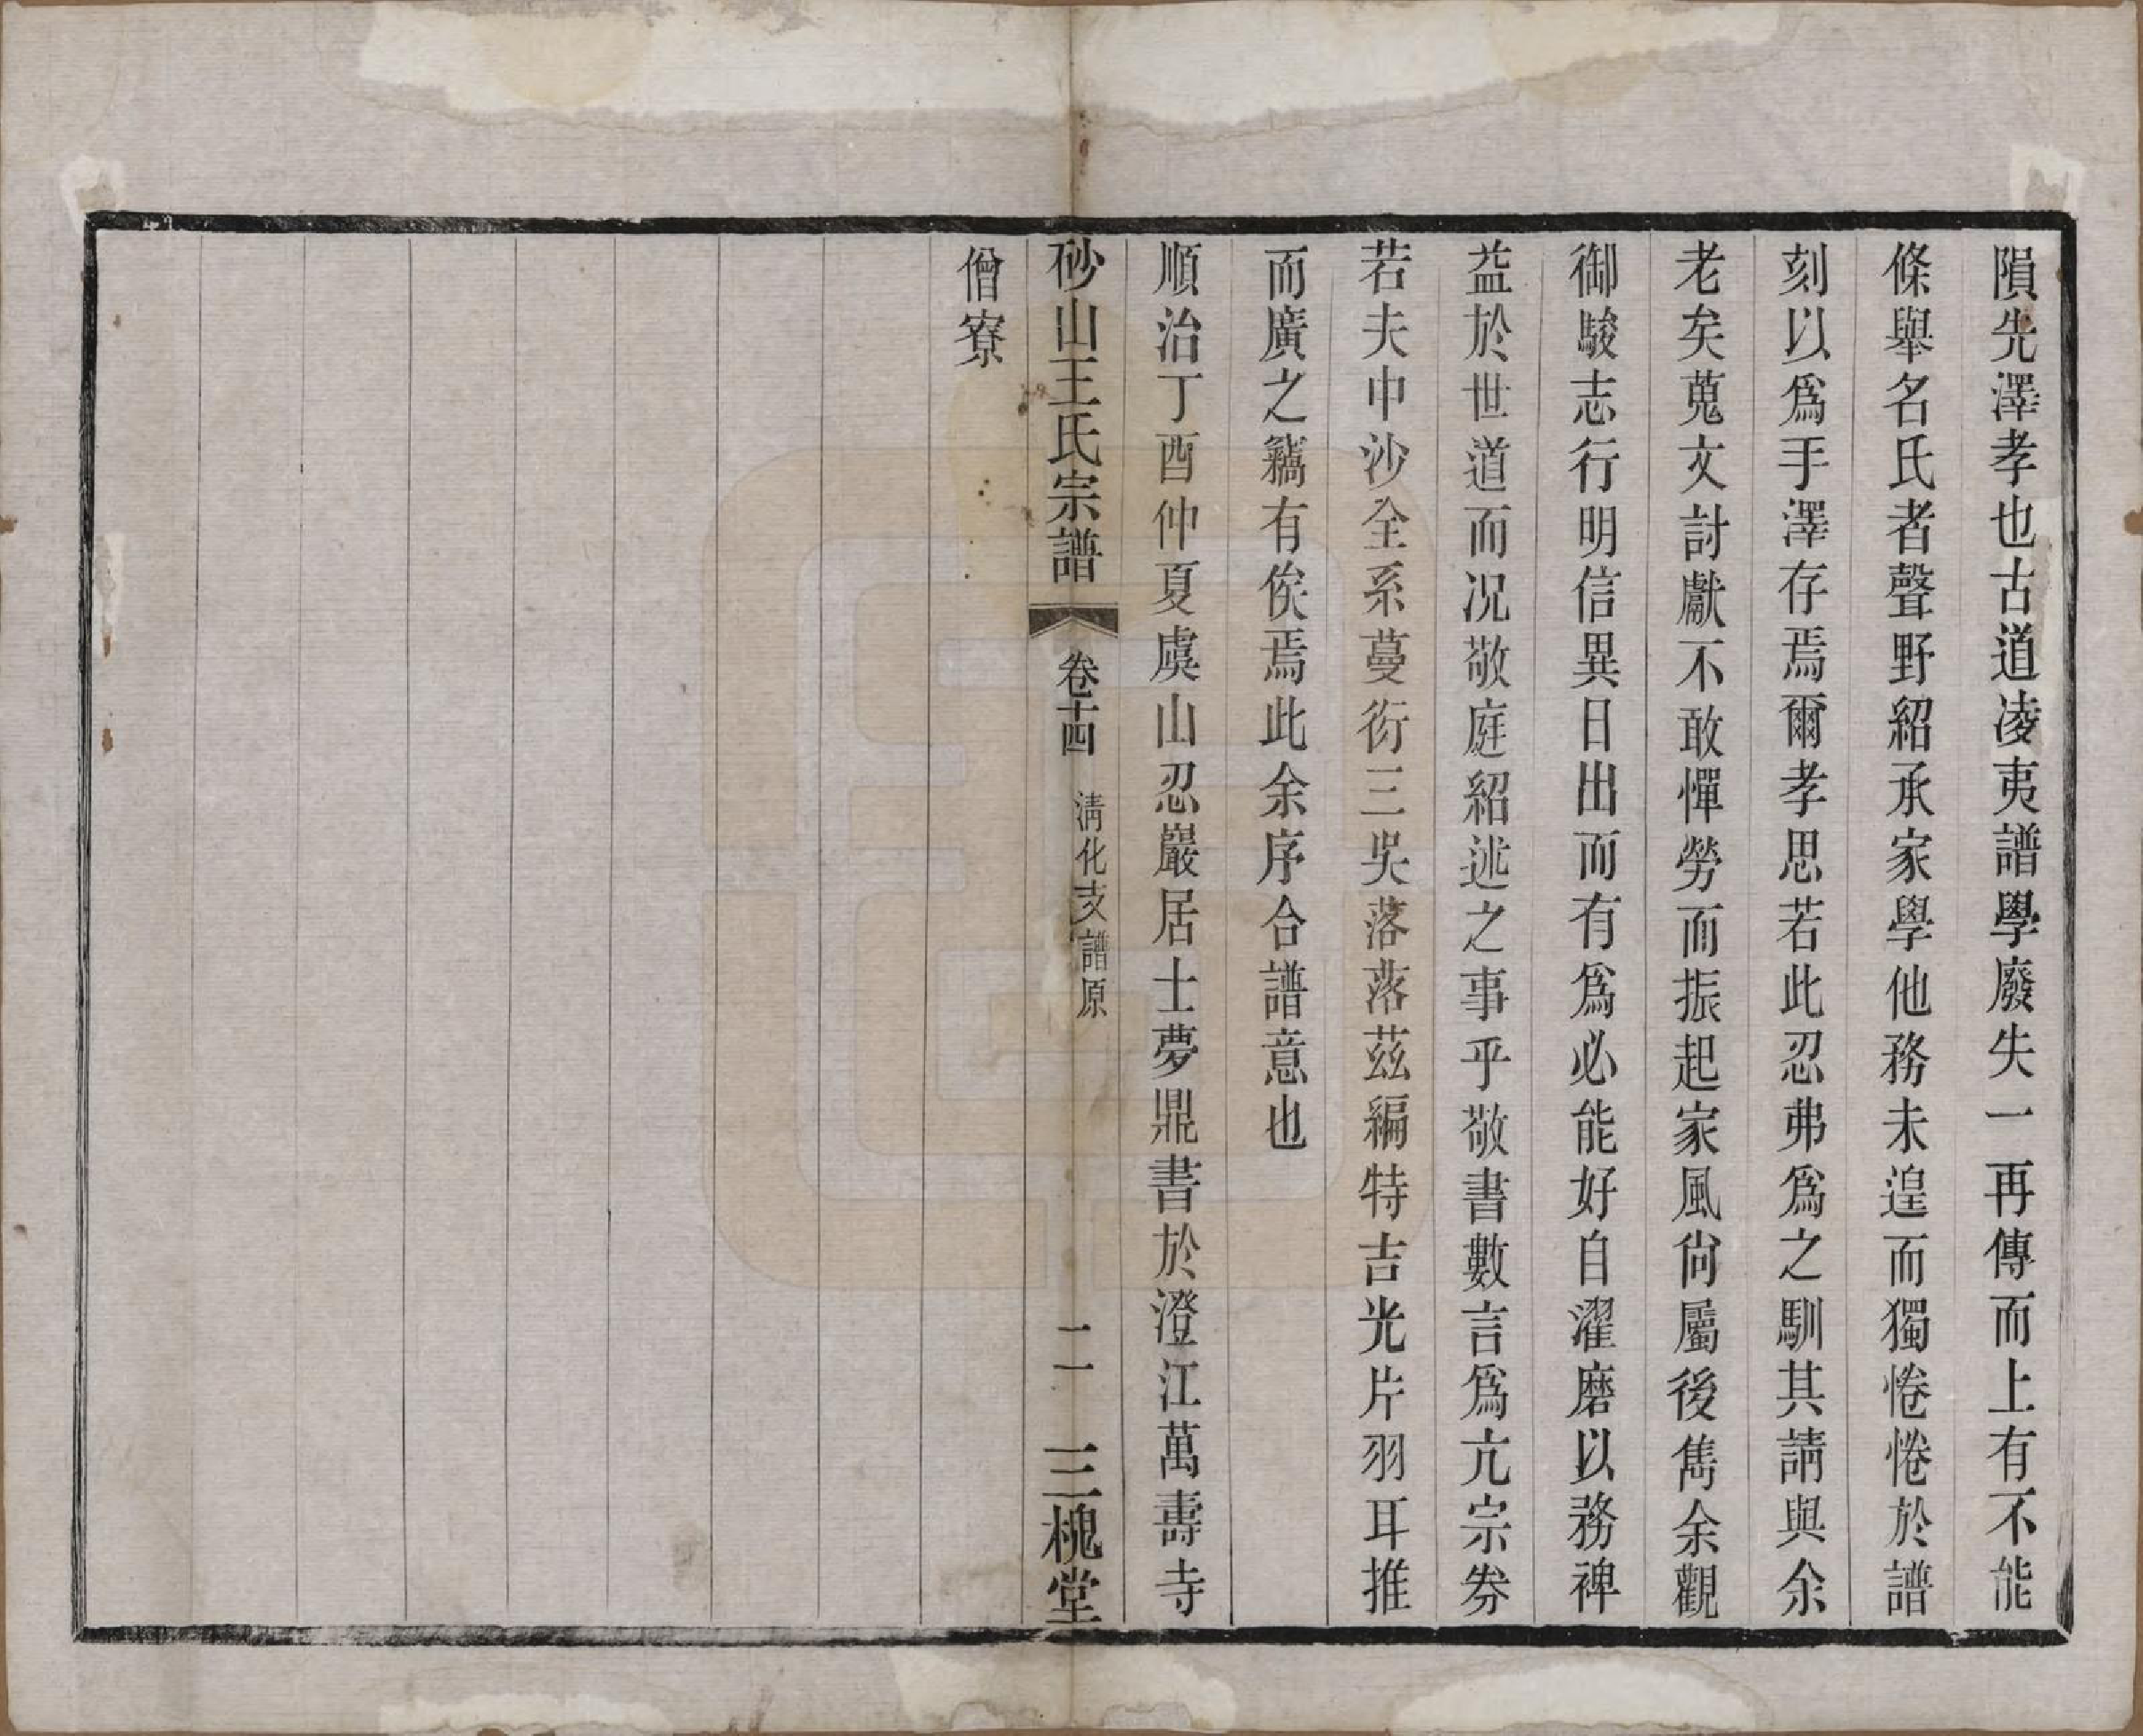 隕先澤孝也古道凌夷譜學廢失一再傳而上有不能
條舉名氏者聲野紹承家學他務未遑而獨惓惓於譜
刻以爲手澤存焉爾孝思若此忍弗爲之馴其請與余
老矣蒐文討獻不敢憚勞而振起家風尙屬後雋余觀
御駿志行明信異日出而有爲必能好自濯磨以務裨
益於世道而況敬庭紹述之事乎敬書數言爲亢宗劵
若夫中沙全系蔓衍三吳落落茲編特吉光片羽耳推
而廣之竊有俟焉此余序合譜意也
順治丁酉仲夏虞山忍巖居士夢鼎書於澄江萬壽寺
砂山王氏宗譜 卷十四 淸化支譜原 二 三槐堂
僧寮